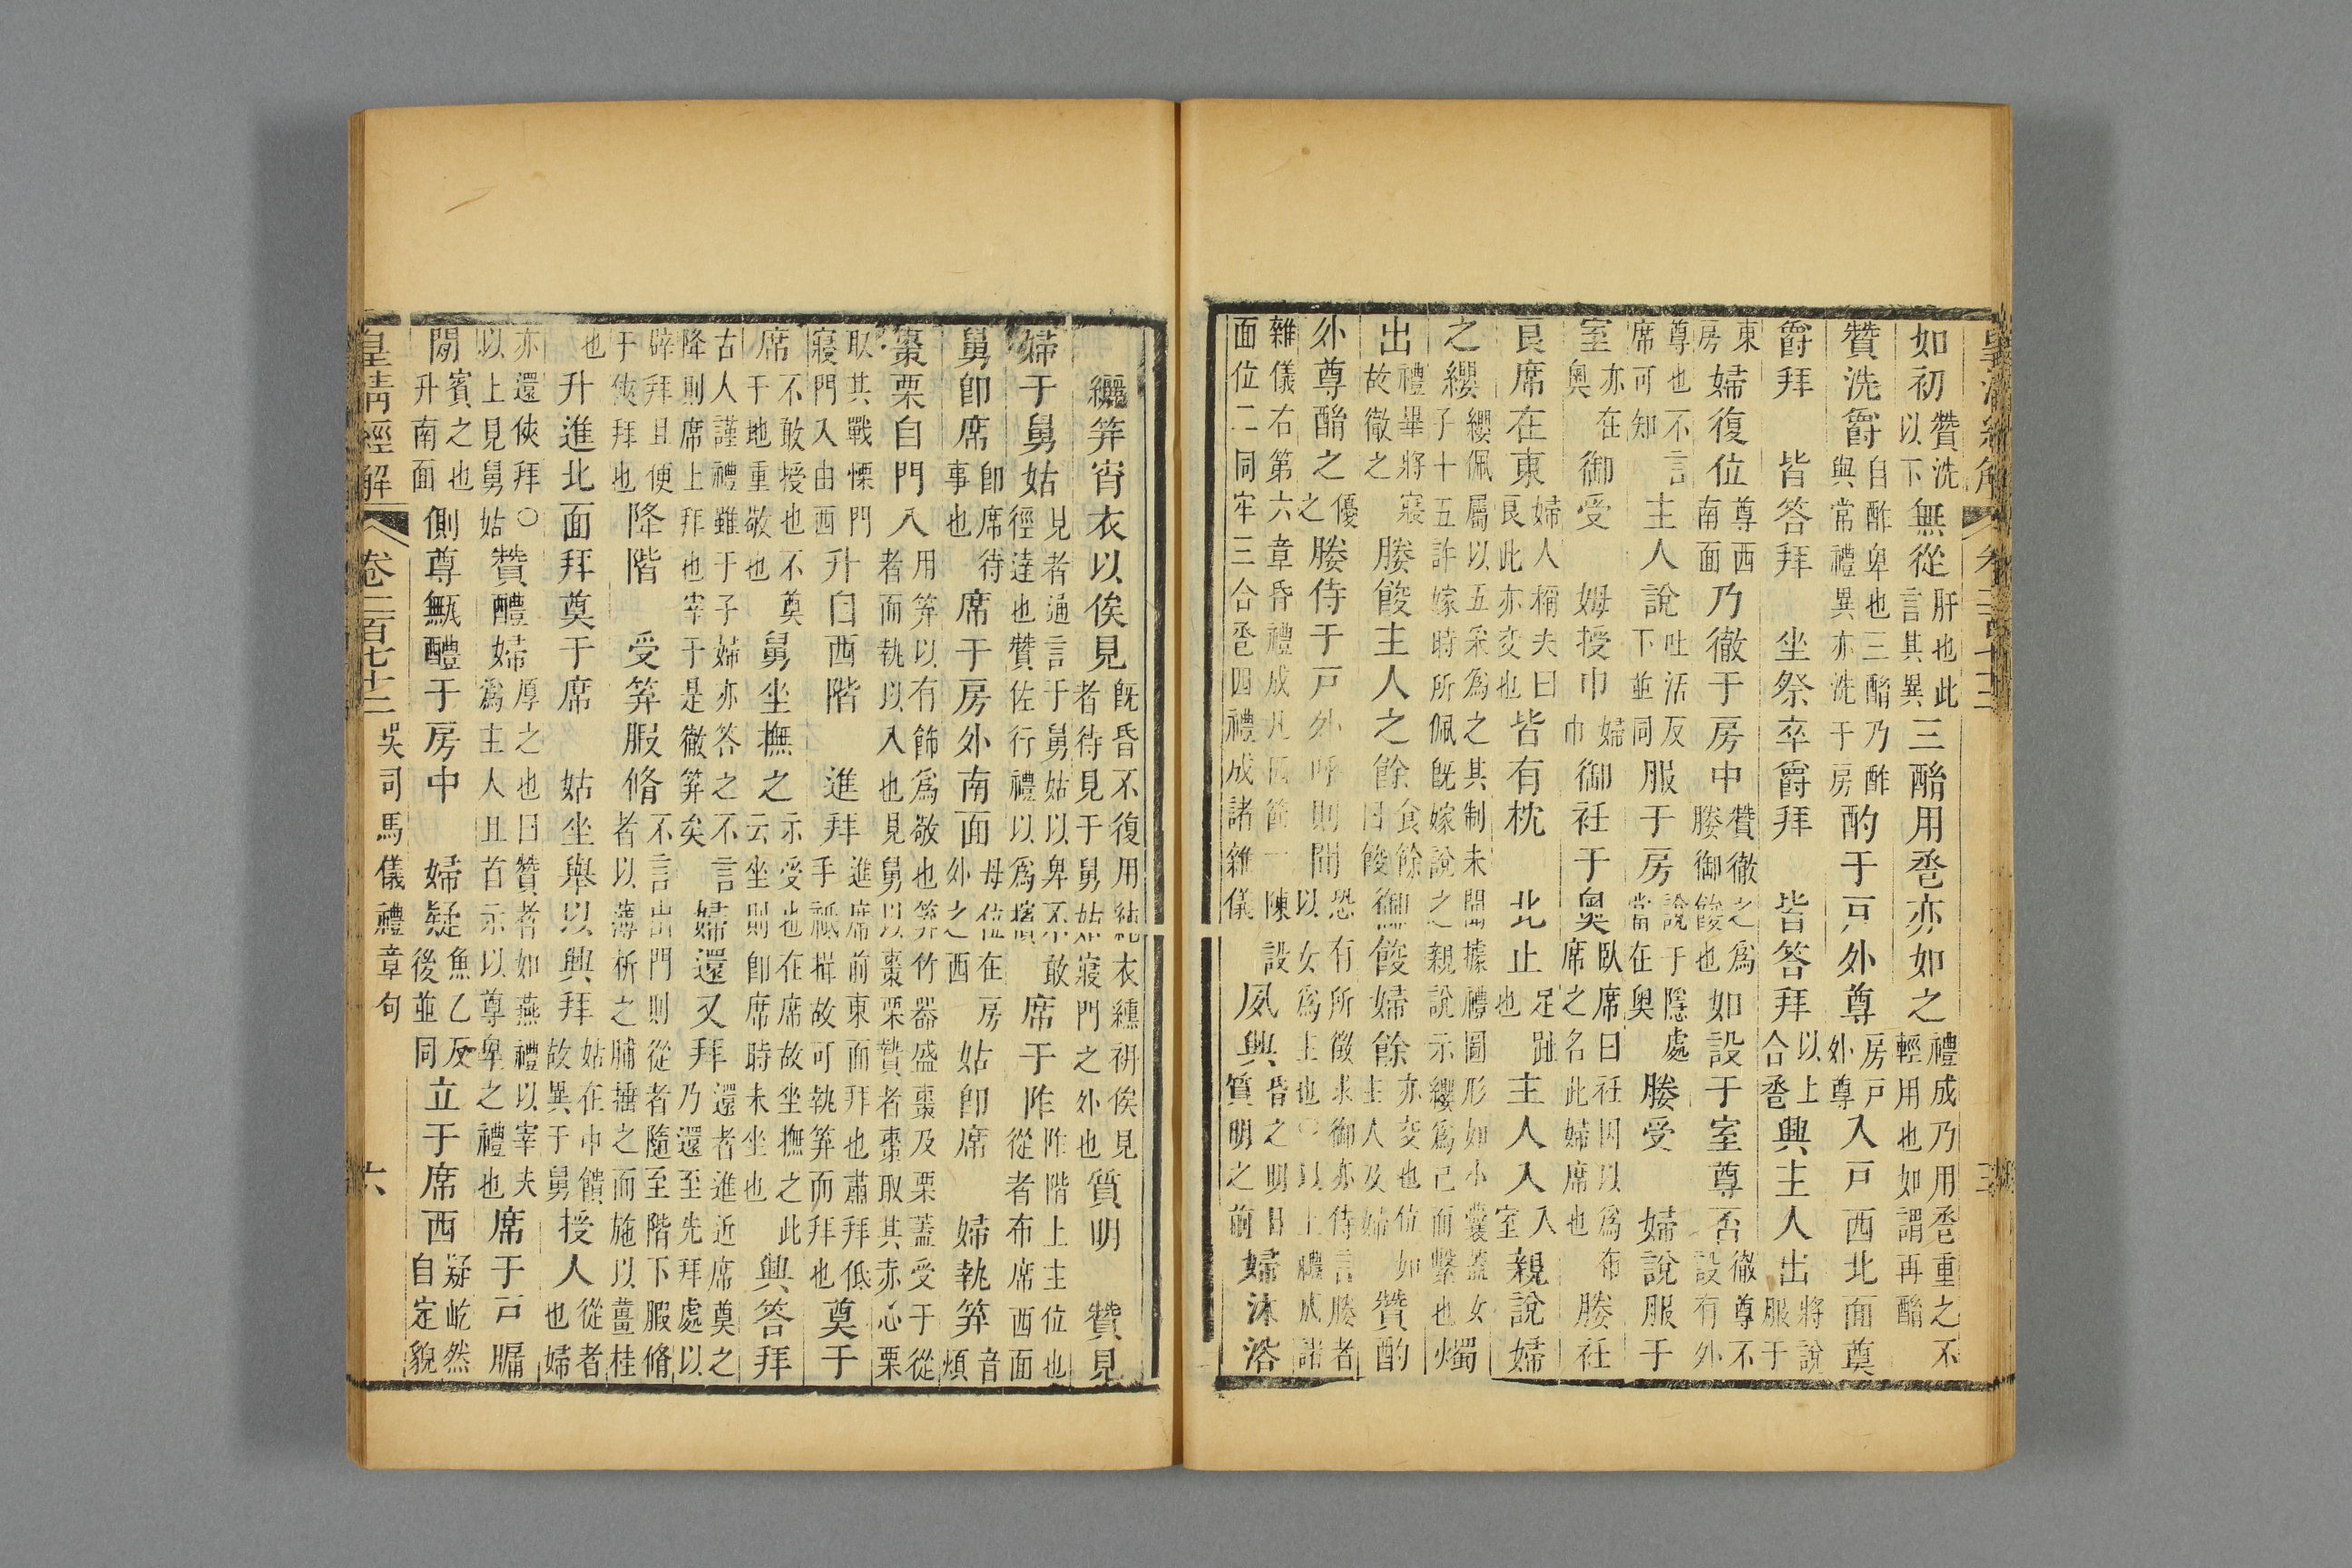 如初贊洗以下無從肝也此言其異三酳用卺亦如之禮成乃用卺重之不輕用也如謂再酳
贊洗爵自酢卑也三酳乃酢與常禮異亦洗于房酌于戶外尊房戶外尊入戶西北面奠
爵拜 皆答拜 坐祭卒爵拜 皆答拜以上合卺興主人出將說服于
東房婦復位尊西南面乃徹于房中贊徹之爲媵御餕也如設于室尊否徹尊不設有外
尊也不言席可知主人說吐活反下並同服于房說于隱處當在奧媵受 婦說服于
室亦在奧御受 姆授巾婦巾御衽于奧臥席曰衽因以爲布席之名此婦席也媵衽
良席在東婦人稱夫曰良此亦变也皆有枕 北止足趾也主人入入室親說婦
之纓纓佩屬以五采爲之其制未聞據禮圖形如小囊蓋女子十五許嫁時所佩既嫁說之親說示纓爲己而繫也燭
出禮畢將寢故徹之媵餕主人之餘食餘曰餕御餕婦餘亦变也位如主人及婦贊酌
外尊酳之優之媵侍于戶外呼則聞恐有所徵求御亦侍言媵者以女爲主也○以上禮成諸
雜儀右第六章昏禮成凡四節一陳設面位二同牢三合卺四禮成諸雜儀夙興昏之明日質明之前婦沐浴
纚笄宵衣以俟見既昏不復用純衣纁袡俟見者待見于舅姑寢門之外也質明 贊見
婦于舅姑見者通言于舅姑以卑不敢徑達也贊佐行禮以爲擯席于阼阼階上主位也從者布席西面
舅卽席卽席待事也席于房外南面母位在房外之西姑卽席 婦執笄音煩
棗栗自門入用笄以有飾爲敬也笄竹器盛棗及栗蓋受于從者而執以入也見舅以棗栗贄者棗取其赤心栗
取其戰慄門寢門入由西升自西階 進拜進席前東面拜也肅拜拜低手祗搓故可執笄而拜也奠于
席不敢授也不奠于地重敬也舅坐撫之示受也在席故坐撫之此云坐則卽席時未坐也興答拜
古人謹禮雖于子婦亦答之不言降則席上拜也宰于是徹笄矣婦還又拜還者進近席奠之乃還至先拜處以
辟拜且便于俠拜也降階 受笄腵脩不言出門則從者隨至階下腵脩者以薄析之脯捶之而施以薑桂
也升進北面拜奠于席 姑坐舉以興拜姑在中饋故異于舅授人從者也婦
亦還俠拜○以上見舅姑贊醴婦厚之也曰贊者如燕禮以宰夫爲主人且首示以尊卑之禮也席于戶牖
閒賓之也升南面側尊甒醴于房中 婦疑魚乙反後並同立于席西疑屹然自定貌
皇清經解 卷二百七十三 吳司馬儀禮章句 六